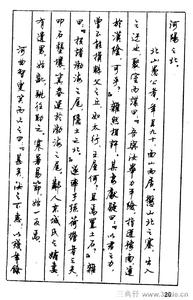 河陽之北。
北山愚公者，年且九十，面山而居。懲山北之塞，出入
之迂也，聚室而謀曰："吾與汝畢力平險，指通豫南，達
於漢陰，可乎？"雜然相許。其妻獻疑曰："以君之力，
曾不能損魁父之丘，如太行、王屋何？且焉置土石？"雜
曰："投諸渤海之尾，隱土之北。"遂率子孫荷擔者三夫，
叩石墾壤，箕畚運於渤海之尾。鄰人京城氏之孀妻
有遺男，始齔，跳往助之。寒暑易節，始一反焉。
河曲智叟笑而止之曰："甚矣，汝之不惠！以殘年餘
20